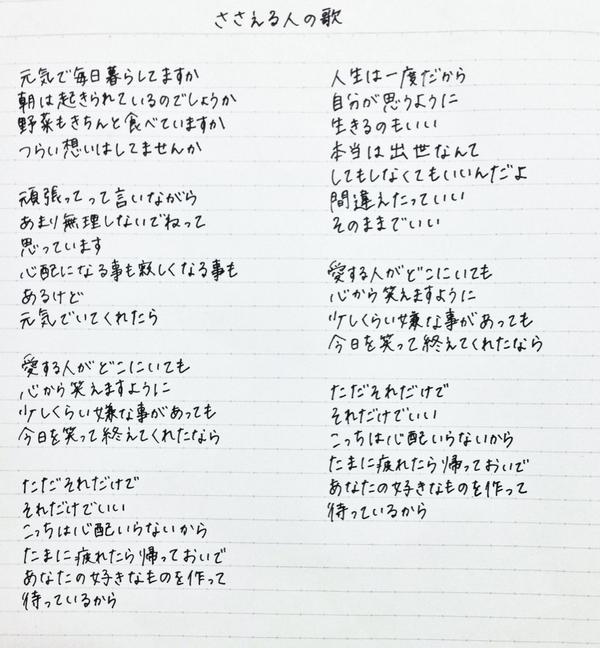 ささえる人の歌
元気で毎日暮らしてますか
朝は起きられているのでしょうか
野菜もきちんと食べていますか
つらい想いはしてませんか
頑張ってって言いながら
あまり無理しないでねって
思っています
心配になる事も寂しくなる事も
あるけど
元気でいてくれたら
愛する人がどこにいても
心から笑えますように
少しくらい嫌な事があっても
今日を笑って終えてくれたなら
ただそれだけで
それだけでいい
こっちは心配いらないから
たまに疲れたら帰っておいで
あなたの好きなものを作って
待っているから
人生は一度だから
自分が思うように
生きるのもいい
本当は出世なんて
してもしなくてもいいんだよ
間違えたっていい
そのままでいい
愛する人がどこにいても
心から笑えますように
少しくらい嫌な事があっても
今日を笑って終えてくれたなら
ただそれだけで
それだけでいい
こっちは心配いらないから
たまに疲れたら帰っておいで
あなたの好きなものを作って
待っているから